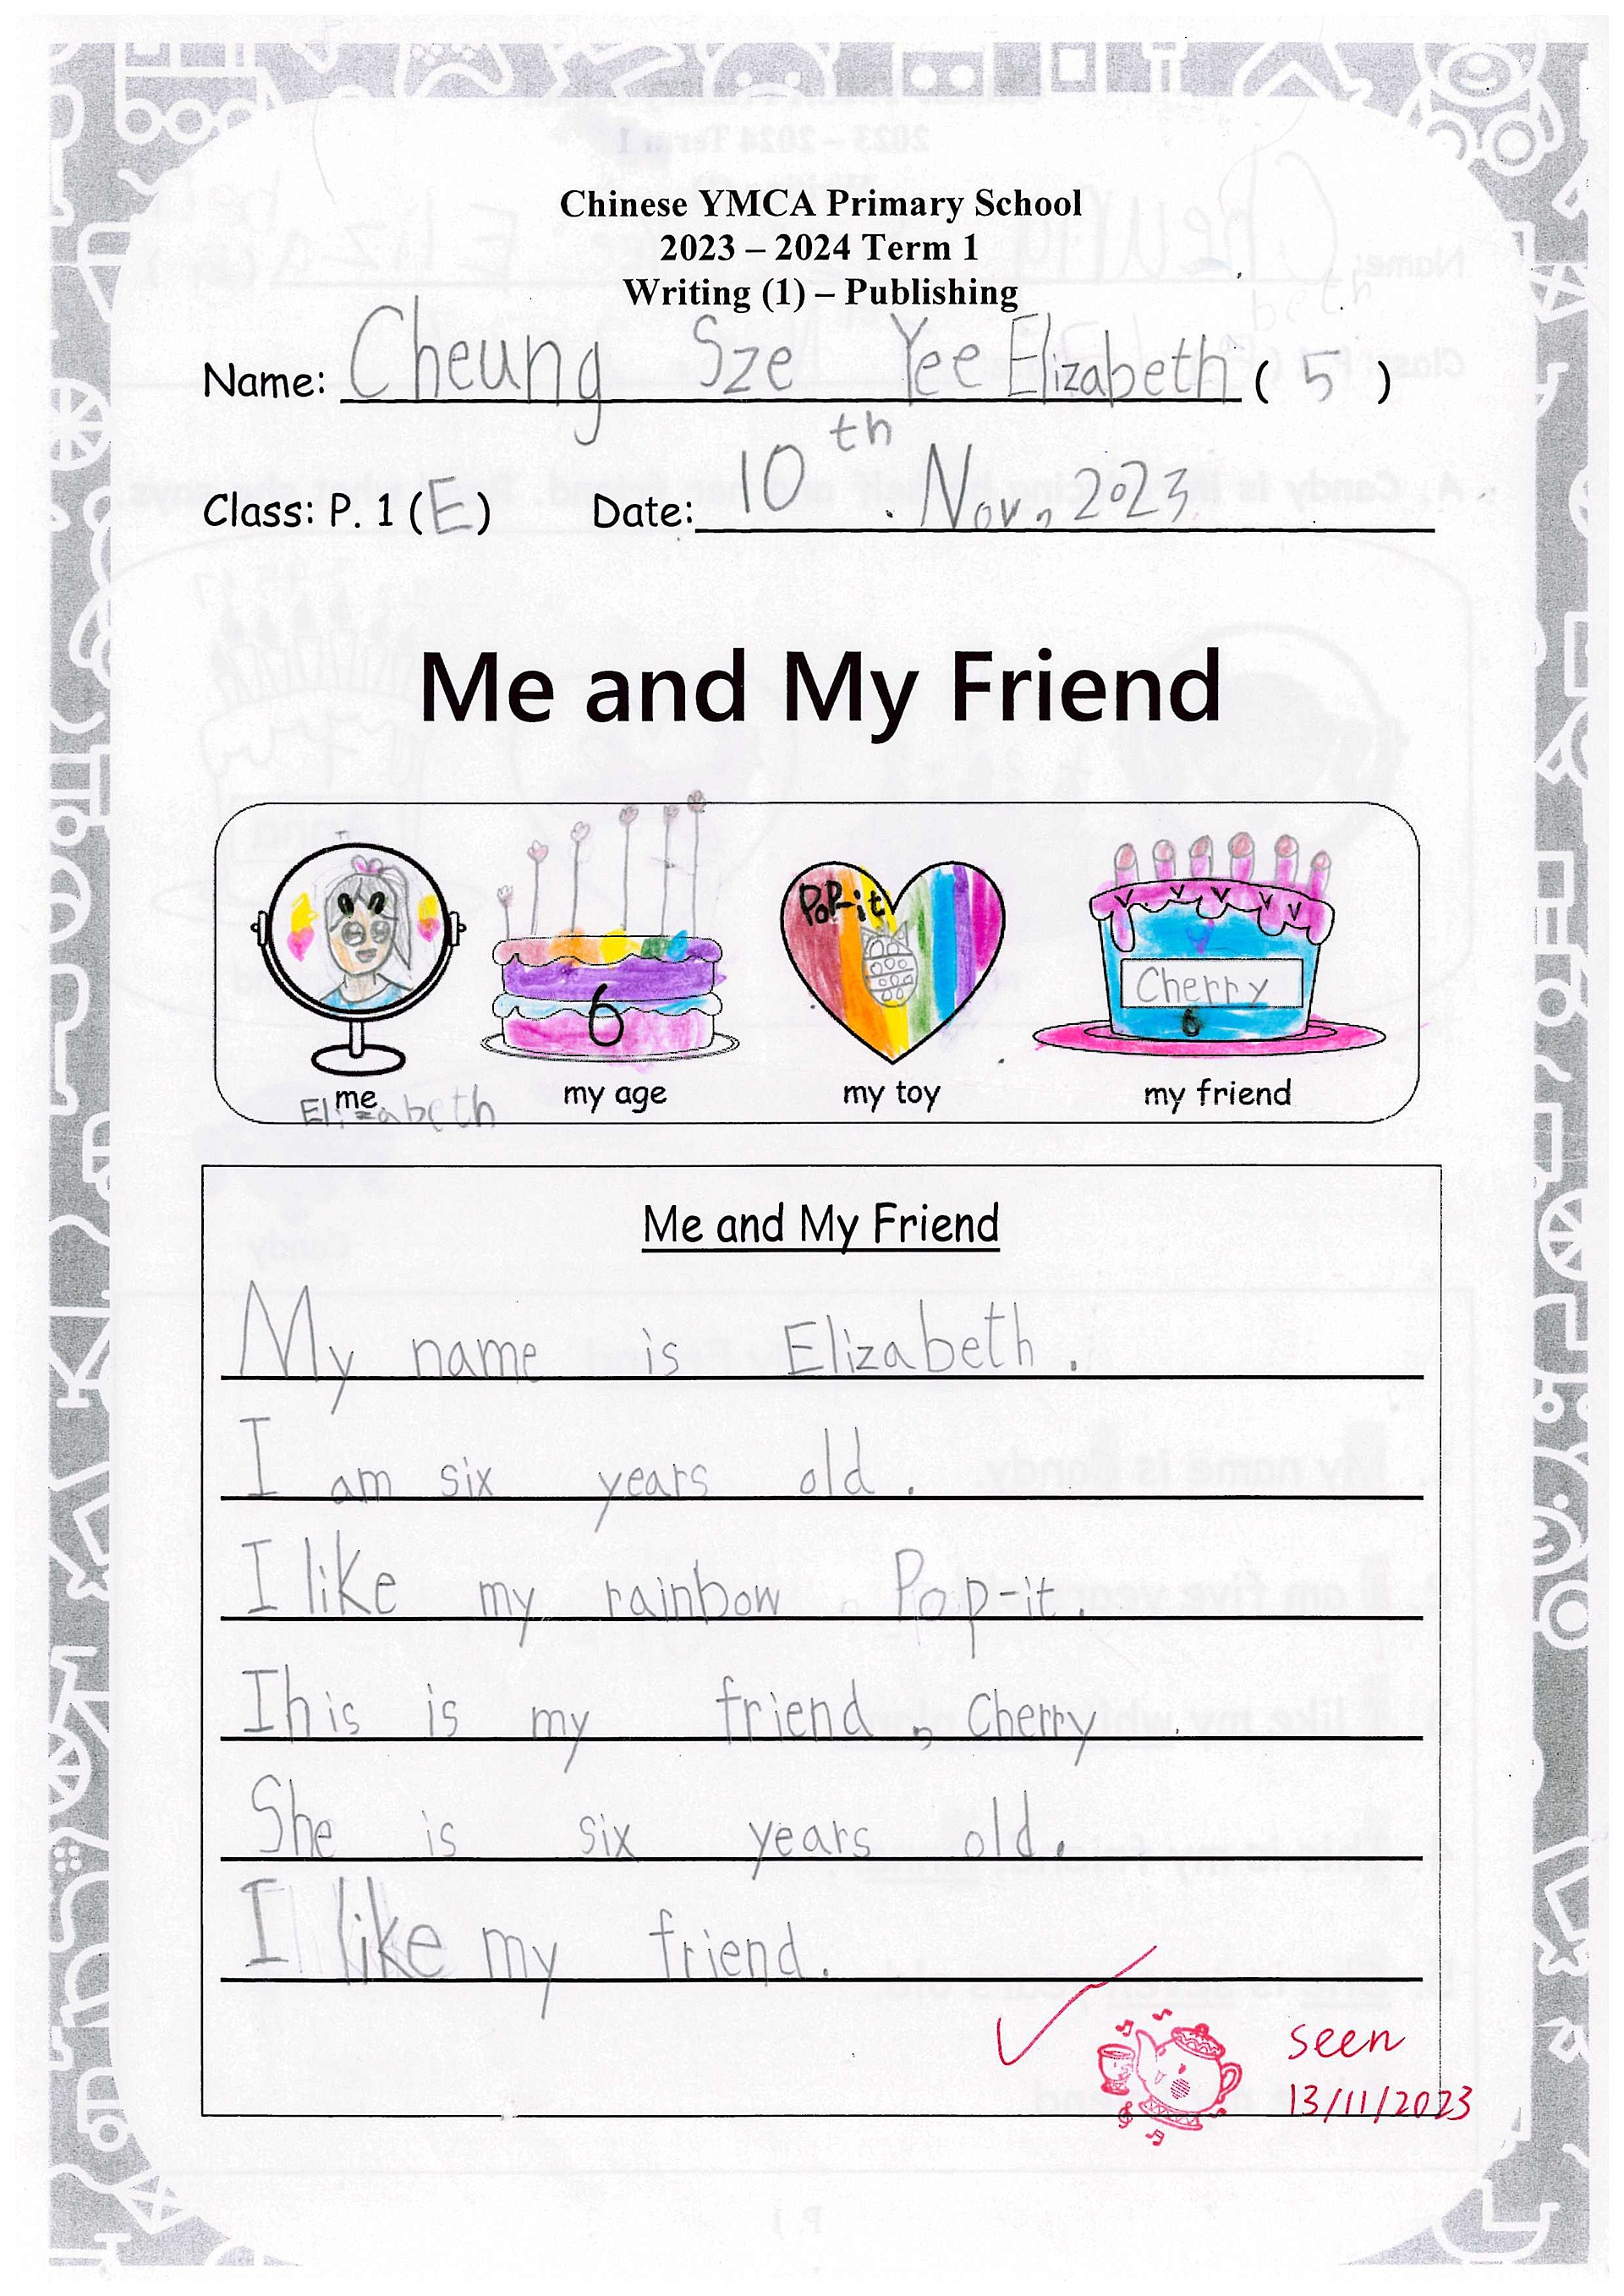 Chinese YMCA Primary School
2023 – 2024 Term 1
Writing (1) – Publishing
Name: Cheung Sze Yee Elizabeth ( 5 )
Class: P. 1 (E) Date: 10th. Nov, 2023
Me and My Friend
Pop-it
Cherry
6
6
me my age my toy my friend
Elizabeth
Me and My Friend
My name is Elizabeth.
I am six years old.
I like my rainbow Pop-it.
This is my friend, Cherry.
She is six years old.
I like my friend.
seen
13/11/2023